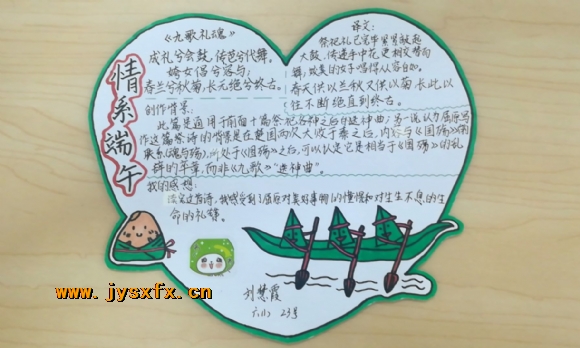 情系端午
《九歌礼魂》
成礼兮会鼓,传芭兮代舞,
姱女倡兮容与;
春兰兮秋菊,长无绝兮终古。
译文:
祭祀礼已完毕紧紧敲起
大鼓,传递手中花更相交替而
舞,姣美的女子唱得从容自如。
春天供以兰秋天供以菊,长此以
往不断绝直到终古。
创作背景:
此篇是通用于前面十篇祭祀各神之后的送神曲;另一说认为屈原写
作这篇祭诗的背景是在楚国两次大败于秦之后,内容与《国殇》
联系《魂与殇》,所处于《国殇》之后,可以认为它是相当于《国殇》的乱
辞的乐章,而非《九歌》"送神曲"。
我的感想:
读完这首诗,我感受到了屈原对美好事物的憧憬和对生生不息的生
命的礼赞。
刘慧霞
六(1) 23号
www.jysxfx.cn